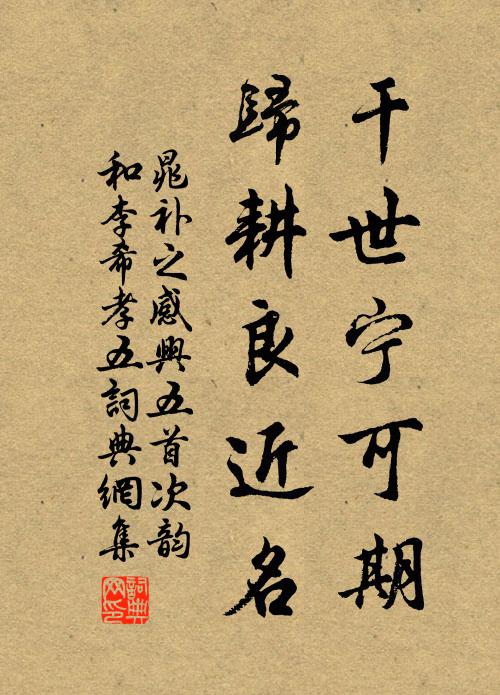 干世宁可期
歸耕良近名
晁补之感興五首次韵
和李希孝五詞典網集
詞典
网印